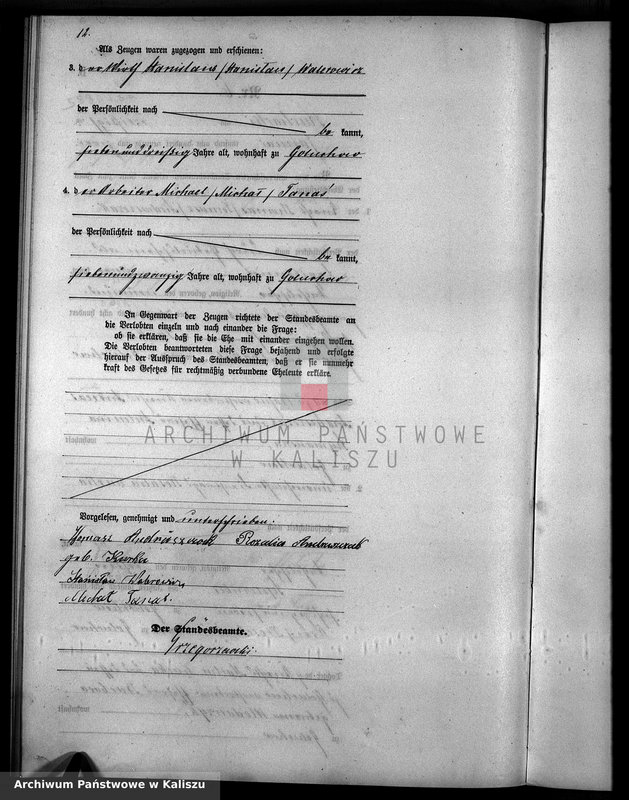 12.
Als Zeugen waren zugezogen und erschienen:
3. der Wirth Stanislaus /Stanisław/ Waberowicz
der Persönlichkeit nach
be kannt,
siebenunddreißig Jahre alt, wohnhaft zu Goluchow
4. der Arbeiter Michael /Michał/ Tanaś
der Persönlichkeit nach
be kannt,
siebenundzwanzig Jahre alt, wohnhaft zu Goluchow
In Gegenwart der Zeugen richtete der Standesbeamte an
die Verlobten einzeln und nach einander die Frage:
ob sie erklären, daß sie die Ehe mit einander eingehen wollen.
Die Verlobten beantworteten diese Frage bejahend und erfolgte
hierauf der Ausspruch des Standesbeamten, daß er sie nunmehr
kraft des Gesetzes für rechtmäßig verbundene Eheleute erkläre.
ARCHIWUM PAŃSTWOWE
W KALISZU
Vorgelesen, genehmigt und unterschrieben:
Tomasz Rozalia
geb. Kurka
Stanisław
Michał Tanaś.
Der Standesbeamte.
Grzegorzewski.
Archiwum Państwowe w Kaliszu